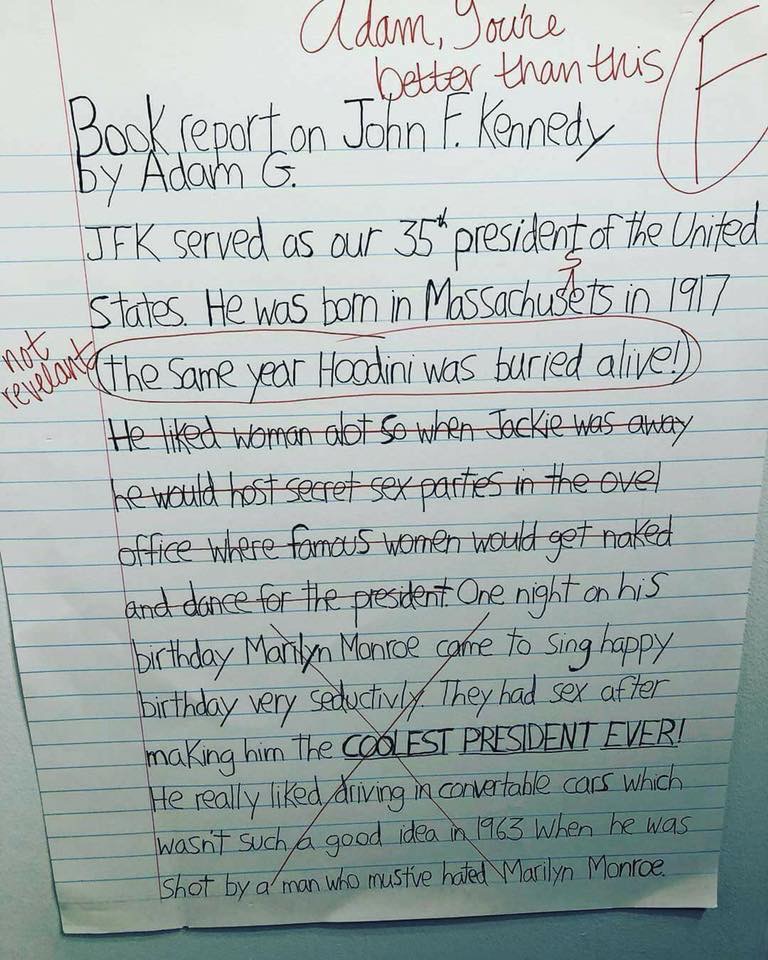 Adam, You're
better than this
F
Book report on John F. Kennedy
by Adam G.
JFK served as our 35th president of the United
States. He was born in Massachusets in 1917
s
not
revelant
(the same year Hoodini was buried alive!)
He liked woman alot so when Jackie was away
he would host secret sex parties in the ovel
office where famous women would get naked
and dance for the president. One night on his
birthday Marilyn Monroe came to sing happy
birthday very seductivly. They had sex after
making him the COOLEST PRESIDENT EVER!
He really liked driving in convertable cars which
wasn't such a good idea in 1963 when he was
shot by a man who mustve hated Marilyn Monroe.